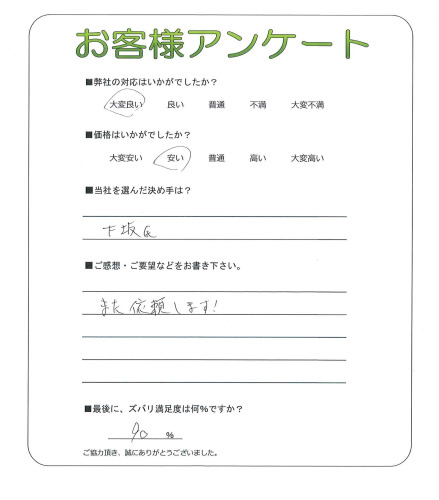 お客様アンケート
■弊社の対応はいかがでしたか？
大変良い 良い 普通 不満 大変不満
■価格はいかがでしたか？
大変安い 安い 普通 高い 大変高い
■当社を選んだ決め手は？
下坂氏
■ご感想・ご要望などをお書き下さい。
また依頼します!
■最後に、ズバリ満足度は何％ですか？
90 %
ご協力頂き、誠にありがとうございました。